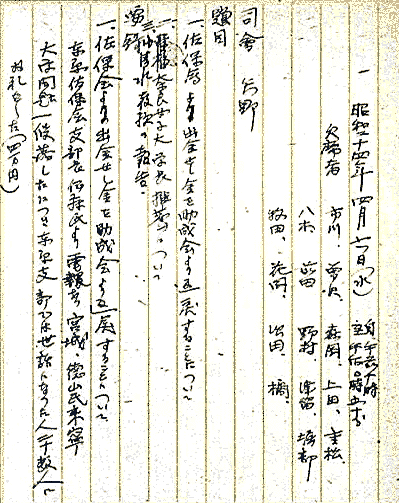 一 昭和二十四年四月六日(水) 自午前十時 至午后〇時五十分
欠席者 市川、曽我、森岡、上田、重松、
八木 前田 野村 津留 堀部
牧田、花岡、治田、橘、
司会 矢野
題目
一、佐保会より出金せし金を助成会より返戻することについて
一、奈良女子大学長推薦について
の報告、
要録
一、佐保会より出金せし金を助成会より返戻することについて
東京佐保会支部長 氏より電報有 宮城、徳山氏来寧
大学問題一段落したについて東京支部では世話になった人二十数人に
お礼をした(四万円)